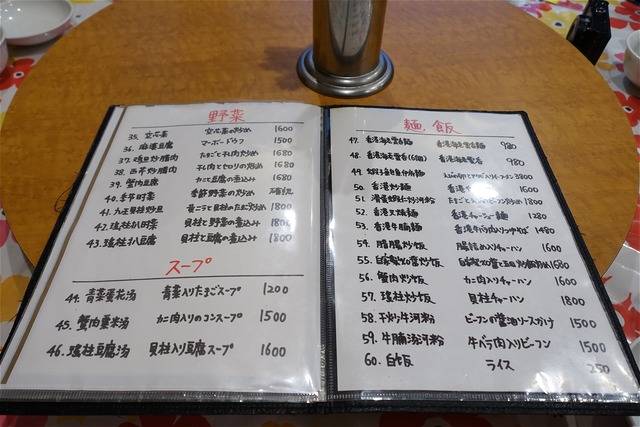 野菜
35. 空芯菜 空芯菜の炒め 1600
36. 麻婆豆腐 マーボードウフ 1500
37. 鶏旦炒腊肉 たまごと干し肉炒め 1680
38. 西芹炒腊肉 干し肉とセロリの炒め 1680
39. 蟹肉豆腐 カニと豆腐の煮込み 1680
40. 季节时菜 季節野菜の炒め
41. 九王貝柱炒旦 黄ニラと貝柱のたまご炒め 1800
42. 瑶柱扒时菜 貝柱と野菜の煮込み 1800
43. 瑶柱扒豆腐 貝柱と豆腐の煮込み 1800
スープ
44. 青菜蛋花汤 青菜入りたまごスープ 1200
45. 蟹肉粟米汤 カニ肉入りのコンスープ 1500
46. 瑶柱豆腐汤 貝柱入り豆腐スープ 1600
麺.飯
47. 香港海老雲呑麺 香港海老雲呑麺 980
48. 香港海老雲呑(6個) 香港海老雲呑 980
49. 3800
50. 香港炒麺 1600
51. 1680
52. 香港叉焼麺 香港チャーシュー麺 1280
53. 香港牛腩麺 香港牛バラ肉入りつゆそば 1480
54. 腊腸炒饭 腸詰め入りチャーハン 1600
55. 1680
56. 蟹肉炒饭 カニ肉入りチャーハン 1600
57. 瑶柱炒饭 貝柱チャーハン 1800
58. 干炒牛河粉 ビーフンの醤油ソースかけ 1500
59. 牛腩汤河粉 牛バラ肉入りビーフン 1500
60. 白饭 ライス 250